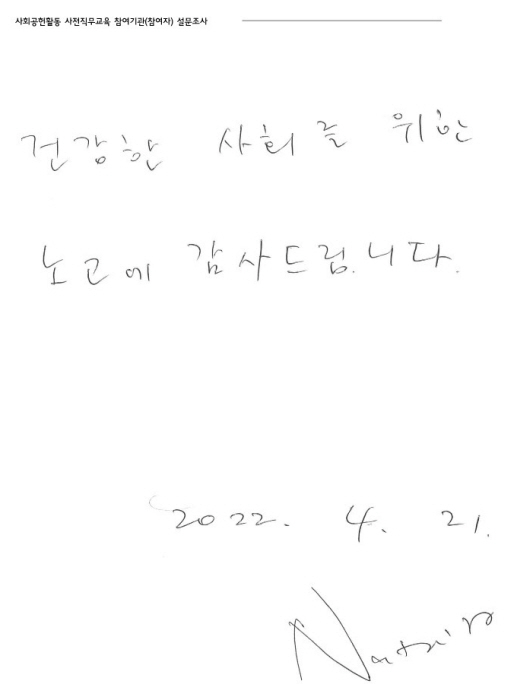 사회공헌활동 사전직무교육 참여기관(참여자) 설문조사
건강한 사회를 위한
노고에 감사드립니다.
2022. 4. 21.